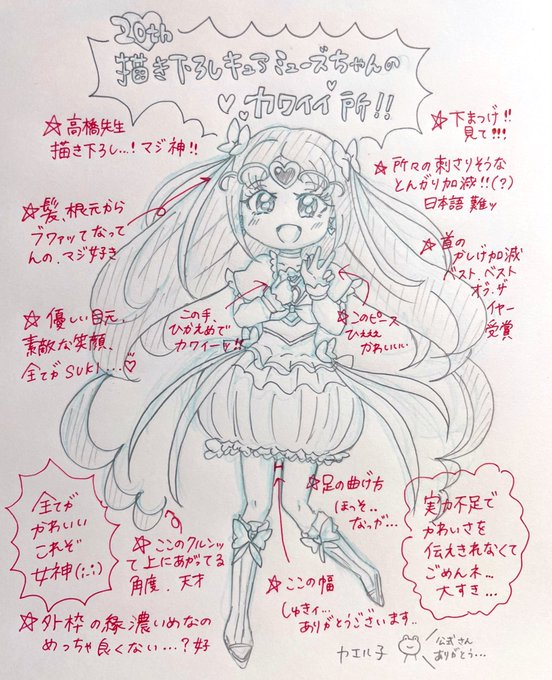 20th
描き下ろしキュアミューズちゃんの
カワイイ所!!
☆高橋先生
描き下ろし…!マジ神!!
☆下まつげ!!
見て!!!
☆所々の刺さりそうな
とんがり加減!!(?)
日本語難ッ
☆髪、根元から
ブワァッてなって
んの、マジ好き
☆首の
かしげ加減
ベスト、ベスト
オブ、ザ
イヤー
受賞
☆優しい目元、
素敵な笑顔、
全てがSUKI…♡
この手、
ひかえめで
カワイー!!
☆このピース
ひぇぇぇ
かわいい、
全てが
かわいい
これぞ
女神(;_;)
☆ここのクルンッ
て上にあがってる
角度、天才
☆足の曲げ方
ほっそ..
なっが…
☆ここの幅
しゅきィ…
ありがとうございます..
実力不足で
かわいさを
伝えきれなくて
ごめんネ…
大すき…
☆外枠の線濃いめなの
めっちゃ良くない…?好
カエル子
公式さん
ありがとう…